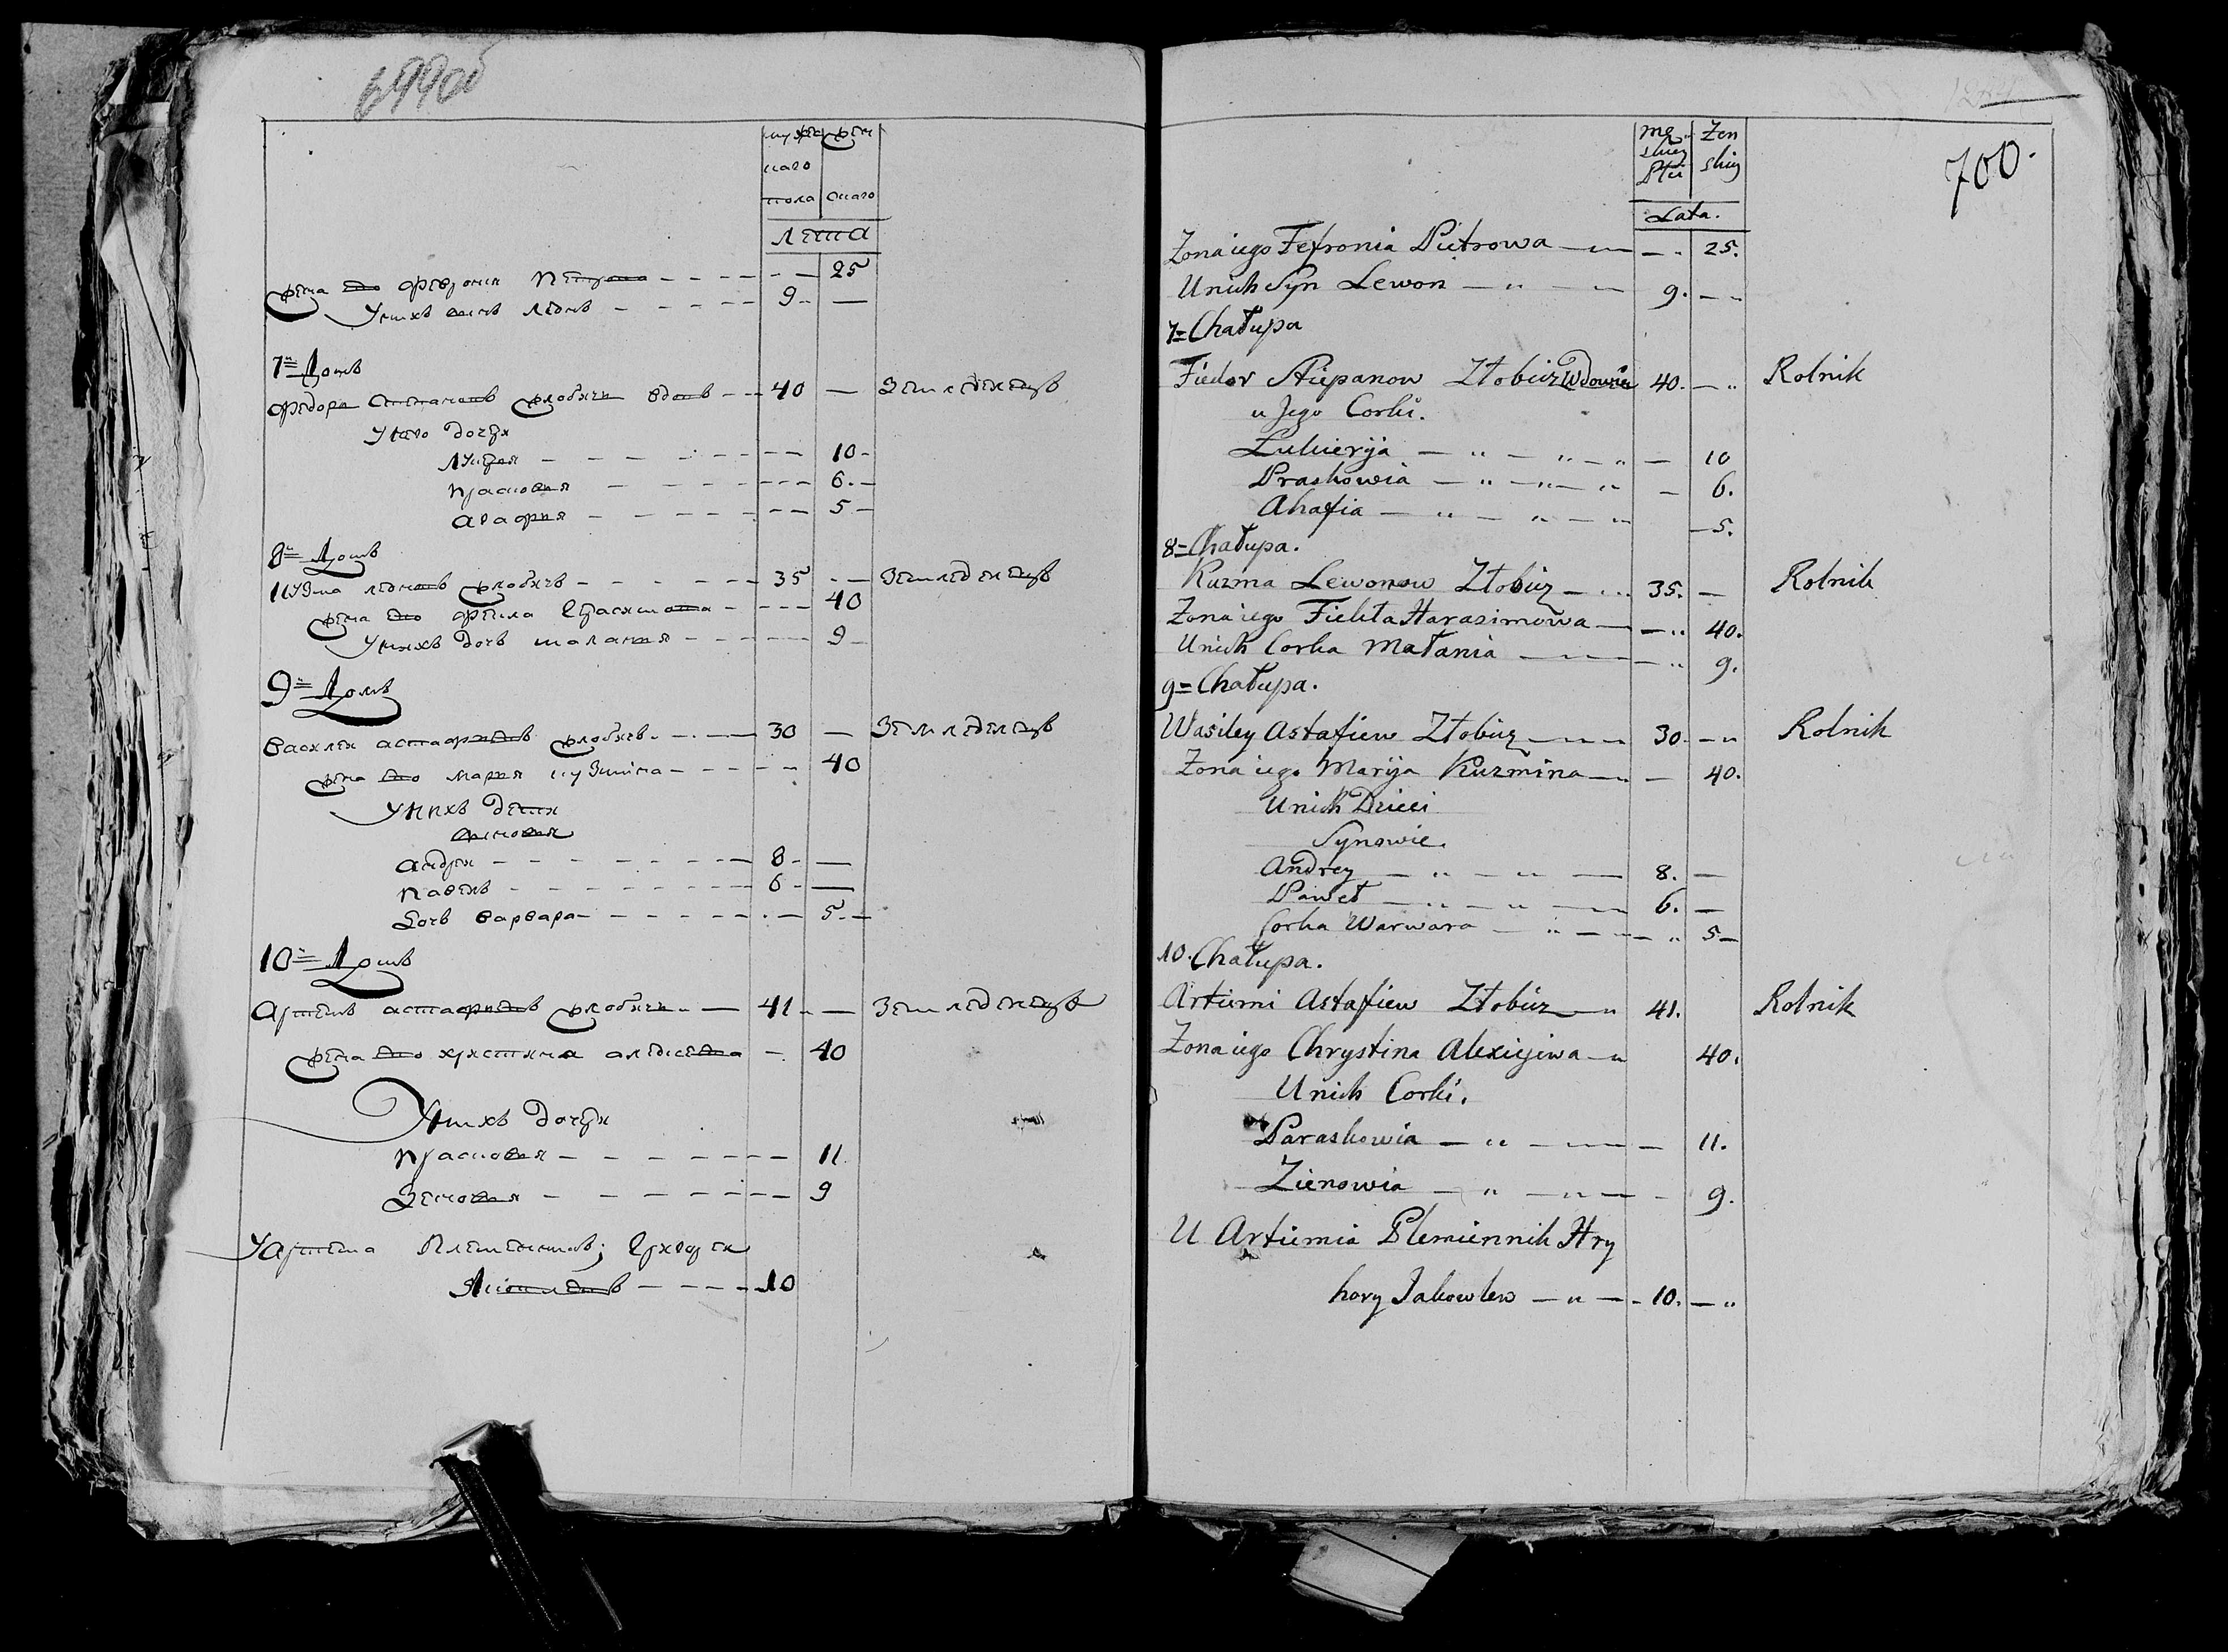 699об
мужес жен
каго
пола скаго
лета
жена ево феврония петрова - - - - - - 25
Уних сынъ леонъ - - - - 9 - -
7й Домъ
федоръ степановъ жлобичъ вдовъ - - 40 - земледелецъ
Унего дочери
лукеря - - - - - - - 10 -
прасковя - - - - - - - 6 -
агафия - - - - - - - 5 -
8й Домъ
кузма леоновъ жлобичъ - - - - - 35 - - земледелецъ
жена ево фекла герасимова - - - - 40
Унихъ дочь маланя - - - - - 9 -
9й Домъ
василеи астафиевъ жлобичъ - - - 30 - земледелецъ
жена ево мария кузмина - - - - - 40
Унихъ дети
сыновя
андреи - - - - - - - 8 - -
павелъ - - - - - - - 6 - -
дочь варвара - - - - - - - 5 -
10й Домъ
Артемъ астафиевъ жлобичъ - - 41 - - земледелецъ
жена ево христина алексеева - - 40
Унихъ дочери
прасковя - - - - - - 11
зеновия - - - - - - 9
У Артема племенникъ григореи
Яковлевъ - - - - 10
700.
mę skiey płci Żen skiey
Lata.
Zona iego Fefronia Pietrowa - - - - 25.
Unich Syn Lewon - " - - 9. - -
7 = Chałupa
Fiedor Stiepanow Złobicz Wdowiec 40. - " Rolnik
u Jego Corki.
Łukierija - " - " - " - 10
Praskowia - " - " - " - 6.
Ahafia - " - " - " - 5.
8 = Chałupa.
Kuzma Lewonow Złobicz - . . . 35. - Rolnik
Zona iego Fiekła Harasimowa - - " 40.
Unich Corka Małania - - - - " 9.
9 = Chałupa.
Wasiley Astafiew Złobicz - - - - 30. - " Rolnik
Zona iego Marija Kuzmina - " - 40.
Unich Dzieci
Synowie.
Andrey - " - " - 8. -
Paweł - " - " - 6. -
Corka Warwara - " - - - " 5 -
10. Chałupa.
Artiemi Astafiew Złobicz - " 41. Rolnik
Zona iego Chrystina Alexiejewa - " 40.
Unich Corki.
Paraskowia - " - - - - 11.
Zienowia - " - " - - 9.
U Artiemia Plemiennik Hry
hory Jakowlew - " - - 10. - "